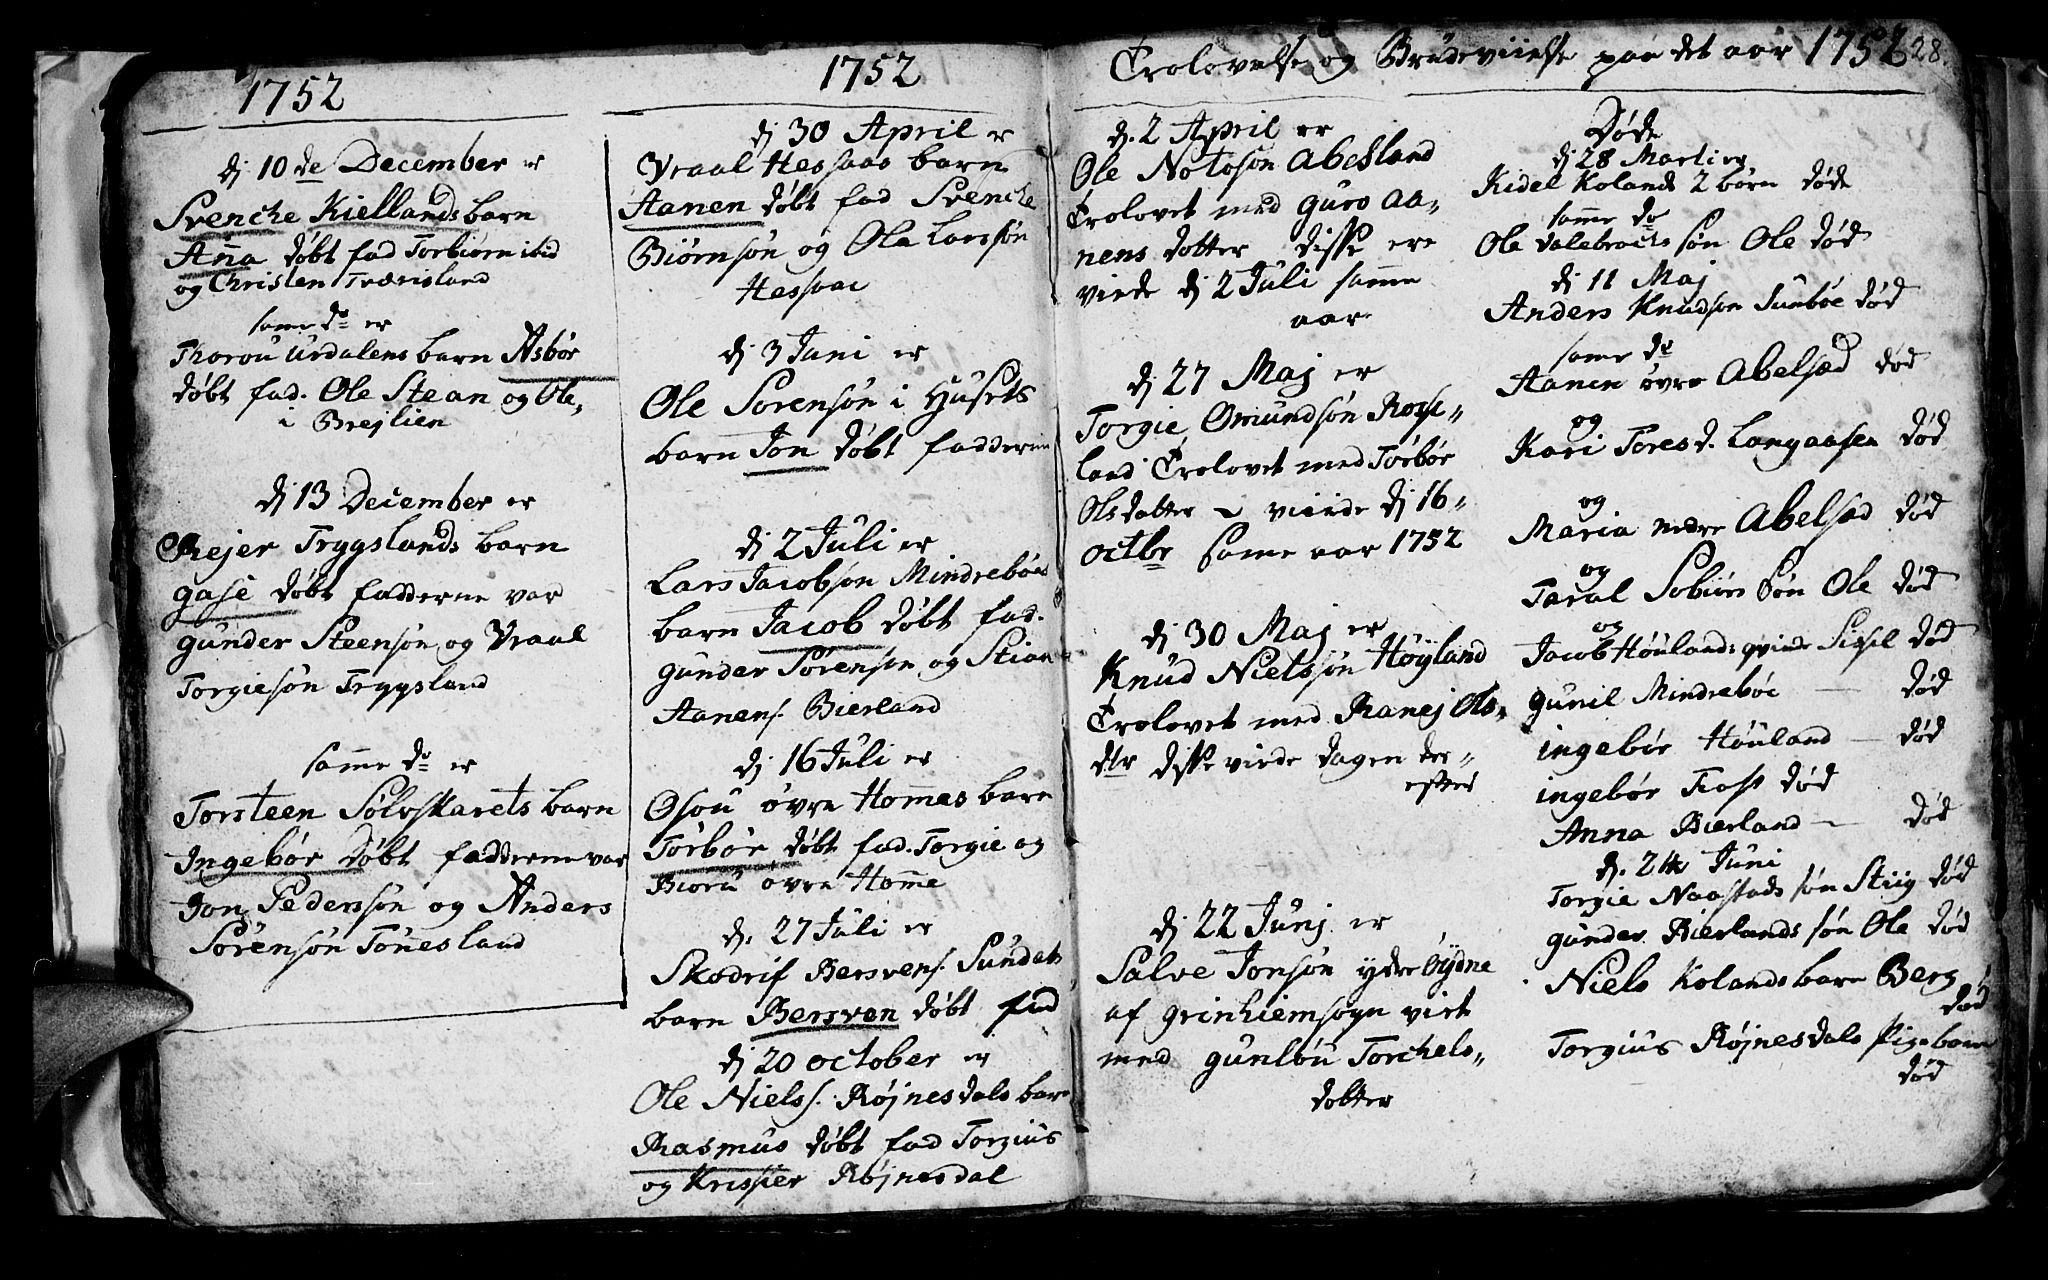 1752
dj 10 de December er
Svenche Kiellands barn
Anna døbt fad Torbiørn ibid
og Christen Tværisland
same do er
Thorou Urdalens barn Asbør
døbt fad. Ole Stean og Ole
i Brejlien
dj 13 December er
Rejer Trygslands barn
gase døbt fadderne var
gunder Steensøn og Vraal
Torgiesøn Trygsland
samme do er
Torsteen Sølvskarets barn
Ingebør døbt fadderne var
Jon Pedersøn og Anders
Sørensøn Tønesland
1752
dj 30 April er
Vraal Hessaas barn
Aanen døbt fad Svenche
Biørnsøn og Ola Larssøn
Hessaae
dj 3 Juni er
Ole Sorensøn i Husets
barn Jon døbt fadderne
dj 2 Juli er
Lars Jacobsøn Mindrebøes
barn Jacob døbt fad.
gunder Sørensøn og Stian
Aanens. Bierland
dj 16 Juli er
Osou øvre Hommes barn
Torbor døbt fad. Torgie og
Bioru øvre Homme
d. 27 Juli er
Skodrif Bersvens. Sundets
barn Bersven døbt fad
dj 20 october er
Ole Niels s. Røjnesdals barn
Rasmus døbt fad Torgius
og Krissier Røjnesdal
Trolovelse og Brudeviielse paa det aar 1752 28.
d. 2 April er
Ole Notosøn Abesland
Trolovet med guro Aa-
nens dotter disse ere
viede dj 2 Juli samme
aar
dj 27 Maj er
Torgie Omundsøn Rosse-
land Trolovet med Torbør
Olsdotter viiede dj 16
octbr same aar 1752
dj 30 Maj er
Knud Nielssøn Høyland
Trolovet med Ranej Ols-
dtr disse viede dagen der-
efter
dj 22 Junj er
Salve Jonsøn ydre Øydne
af grinhiemsogn viet
med gunlou Torchels-
dotter
Døde
dj 28 Marti er
Kidel Kolands 2 børn døde
samme do
Ole dalebrochs søn Ole død
dj 11 Maj
Anders Knudsøn Sunbøe død
same do
Aanen øvre Abelsæd død
og
Kari Tores d. Langaasen død
og
Maria nedre Abelsæd død
og
Taral Sobiørs Søn Ole død
og
Jacob Høulands qvinde Sissel død
gunil Mindrebøe død
ingebør Høuland død
ingebør Fost død
Anna Bierland død
d. 24 Juni
Torgie Naastads søn Stiig død
gunder Bierlands søn Ole død
Niels Kolands barn Berg
død
Torgius Røjnesdals Pigebarn
død